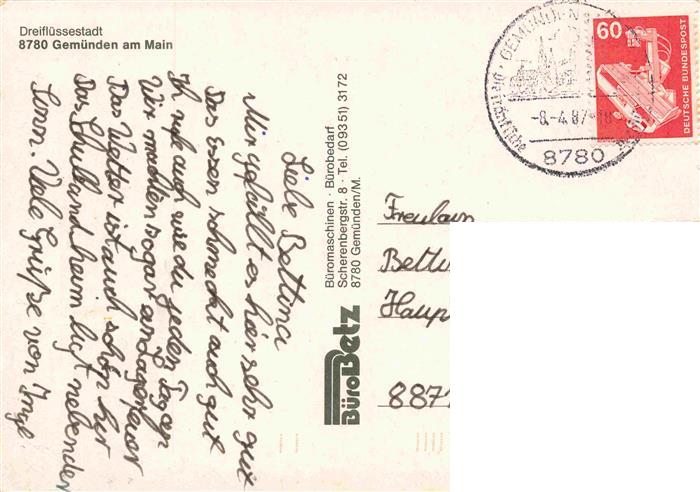 Dreiflüssestadt
8780 Gemünden am Main
Liebe Bettina
Mir gefällt es hier sehr gut
Das essen schmeckt auch gut
Ich rufe auch wie du jeden Tag an
Wir machten sogar ein Lagerfeuer
Das Wetter ist auch schön hir
Das Schullandheim ligt neben der
Sonn. Viele Grüße von Ingl.
Büromaschinen · Bürobedarf
Scherenbergstr. 8 · Tel. (09351) 3172
8780 Gemünden/M.
BüroBetz
GEMÜNDEN
-8.-4.87-18
8780
60
DEUTSCHE BUNDESPOST
Freulain
Bettin
Haup
887